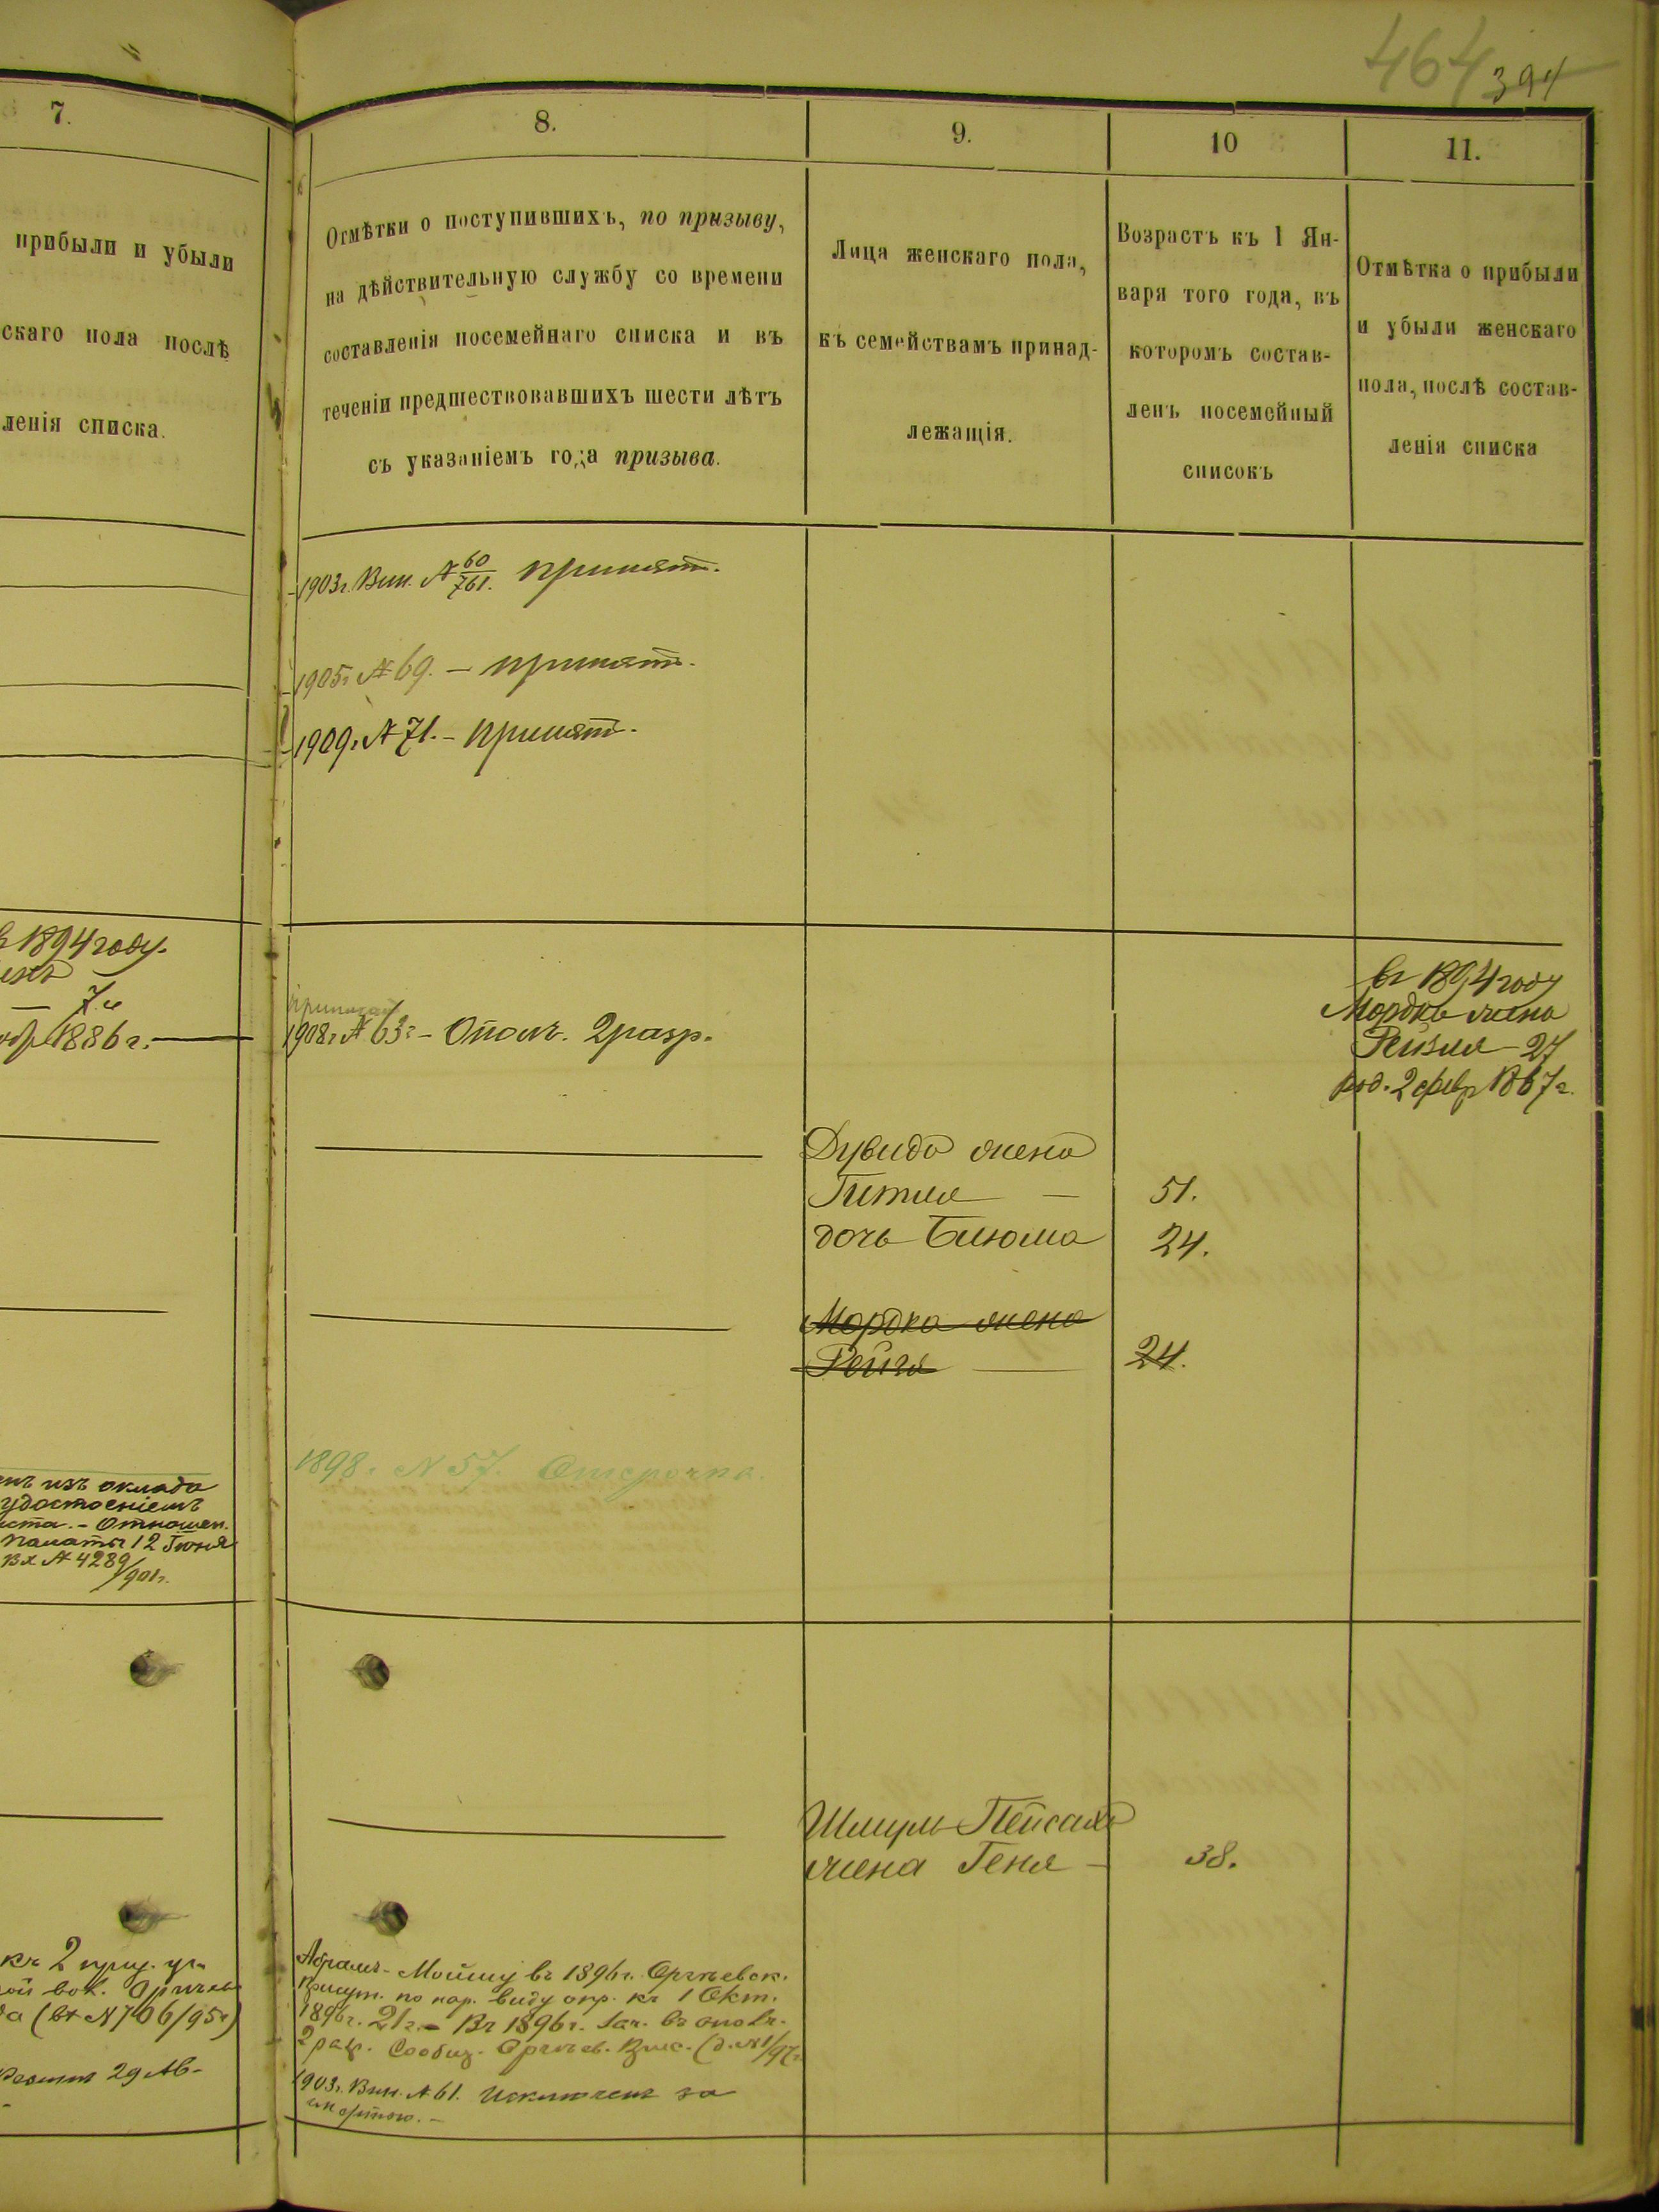 464 394
7.
прибыли и убыли
скаго пола послѣ
ленія списка.
1894 году.
7 и
1886 г.
изъ оклада
удостоеніемъ
Отношен.
палаты 12 Іюня
Вх № 4289/901г.
къ 2
(вх № 706/95г)
29 Ав-
8.
Отмѣтки о поступившихъ, по призыву,
на дѣйствительную службу со времени
составленія посемейнаго списка и въ
теченіи предшествовавшихъ шести лѣтъ
съ указаніемъ года призыва.
1903г. Вин. № 60/761. принятъ.
1905г № 69. — принятъ.
1909г. № 71. – принятъ.
1908г. № 63г – Ополч. 2 разр.
1898г. № 57. Отсрочка.
Абрамъ-Мойшу въ 1896г. Оргѣевск.
присут. по нар. виду опр. къ 1 Окт.
1896г. 21г. – Въ 1896г. зач. въ ополч.
2 разр. Сообщ. Оргѣев. (д. №1/97г.
1903г. Вин. № 61. Исключенъ за
смертью. –
9.
Лица женскаго пола,
къ семействамъ принад-
лежащія.
Дувида жена
Гитля —
дочь Блюма
Мордка жена
Рейзя —
Шмуль-Пейсаха
жена Геня –
10
Возрастъ къ 1 Ян-
варя того года, въ
которомъ состав-
ленъ посемейный
списокъ
51.
24.
24.
38.
11.
Отмѣтка о прибыли
и убыли женскаго
пола, послѣ состав-
ленія списка
Въ 1894 году
Мордка жена
Рейзля – 27
род. 2 февр 1867г.